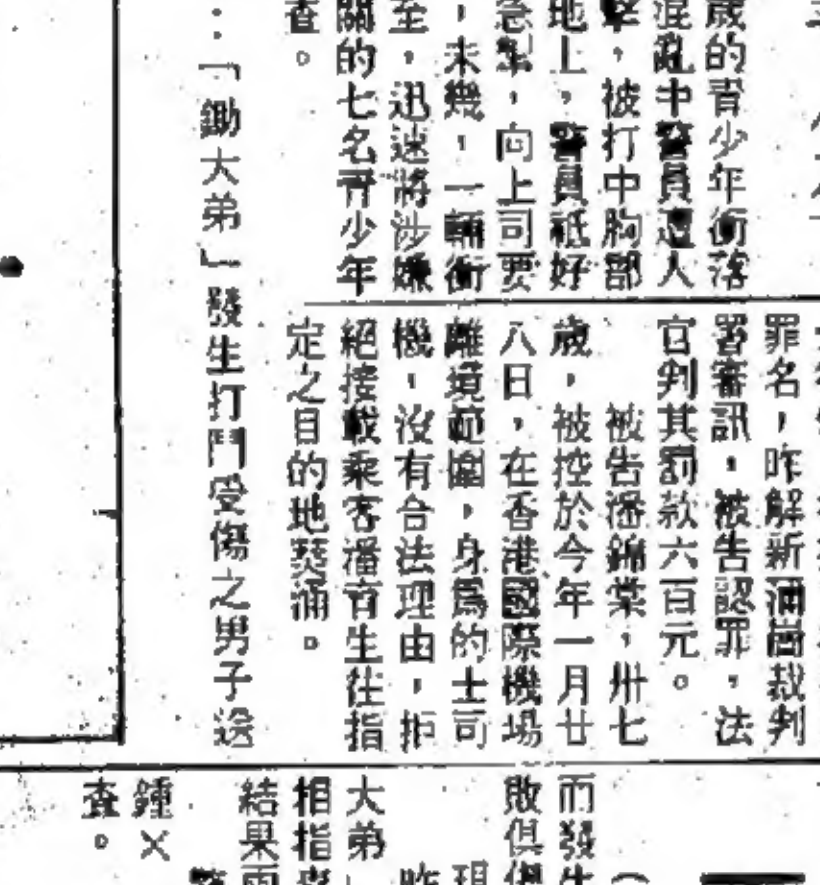 歲的青少年衝落
混亂中警員遭人
擊,被打中胸部
地上,警員祇好
急掣,向上司要
,未幾,一輛衝
至,迅速將涉嫌
關的七名青少年
查。
罪名,昨解新蒲崗裁判
署審訊,被告認罪,法
官判其罰款六百元。
被告潘錦棠,卅七
歲,被控於今年一月廿
八日,在香港國際機場
離境範圍,身爲的士司
機,沒有合法理由,拒
絕接載乘客潘育生往指
定之目的地葵涌。
:「鋤大弟」發生打鬥受傷之男子送
而發生
敗俱傷
現
昨
大弟」
相指責
結果兩
警
鍾×
查。